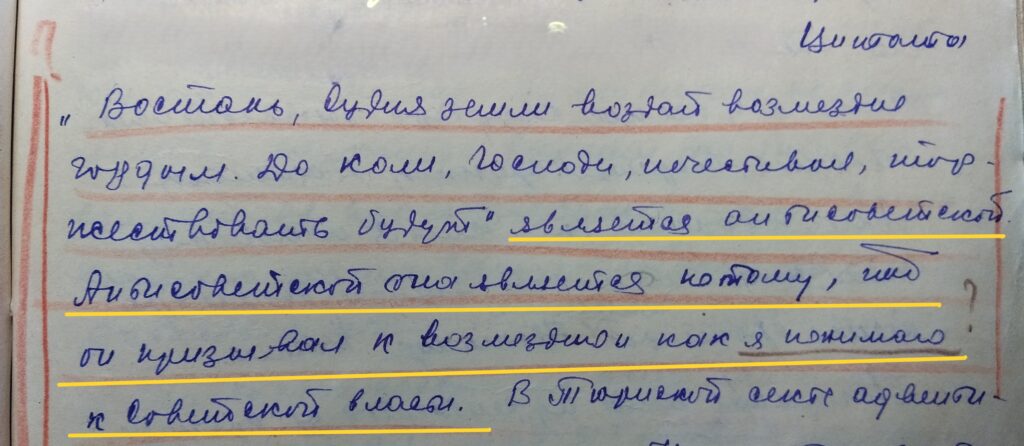 Цитата
„Востань, судия земли воздай возмездие
гордым. До коли, Господи, нечестивые, тор-
жествовать будут" является антисоветской.
Антисоветской она является потому, что
он призывал к возмездию как я понимаю ?
к Советской власти. В Турской секте адвенти-